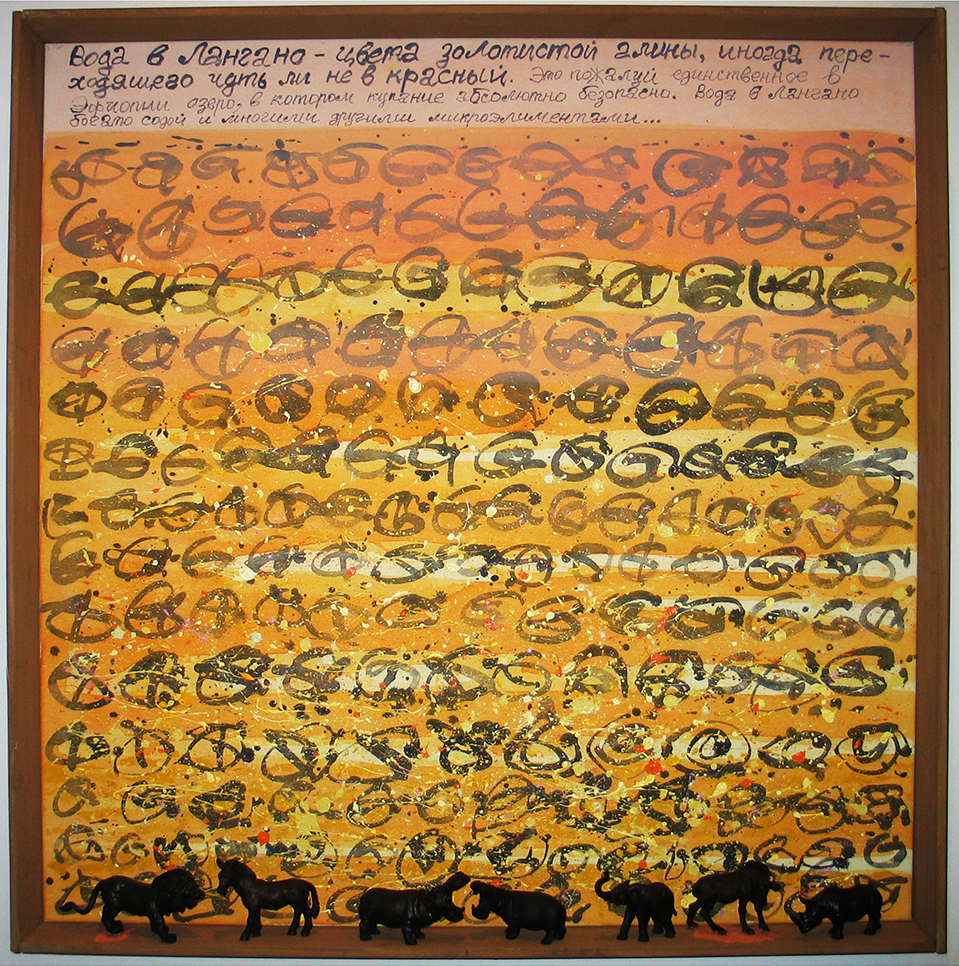 Вода в Лангано - цвета золотистой глины, иногда пере-
ходящего чуть ли не в красный. Это пожалуй единственное в
Эфиопии озеро, в котором купание абсолютно безопасно. Вода в Лангано
богато содой и многими другими микроэлиментами...